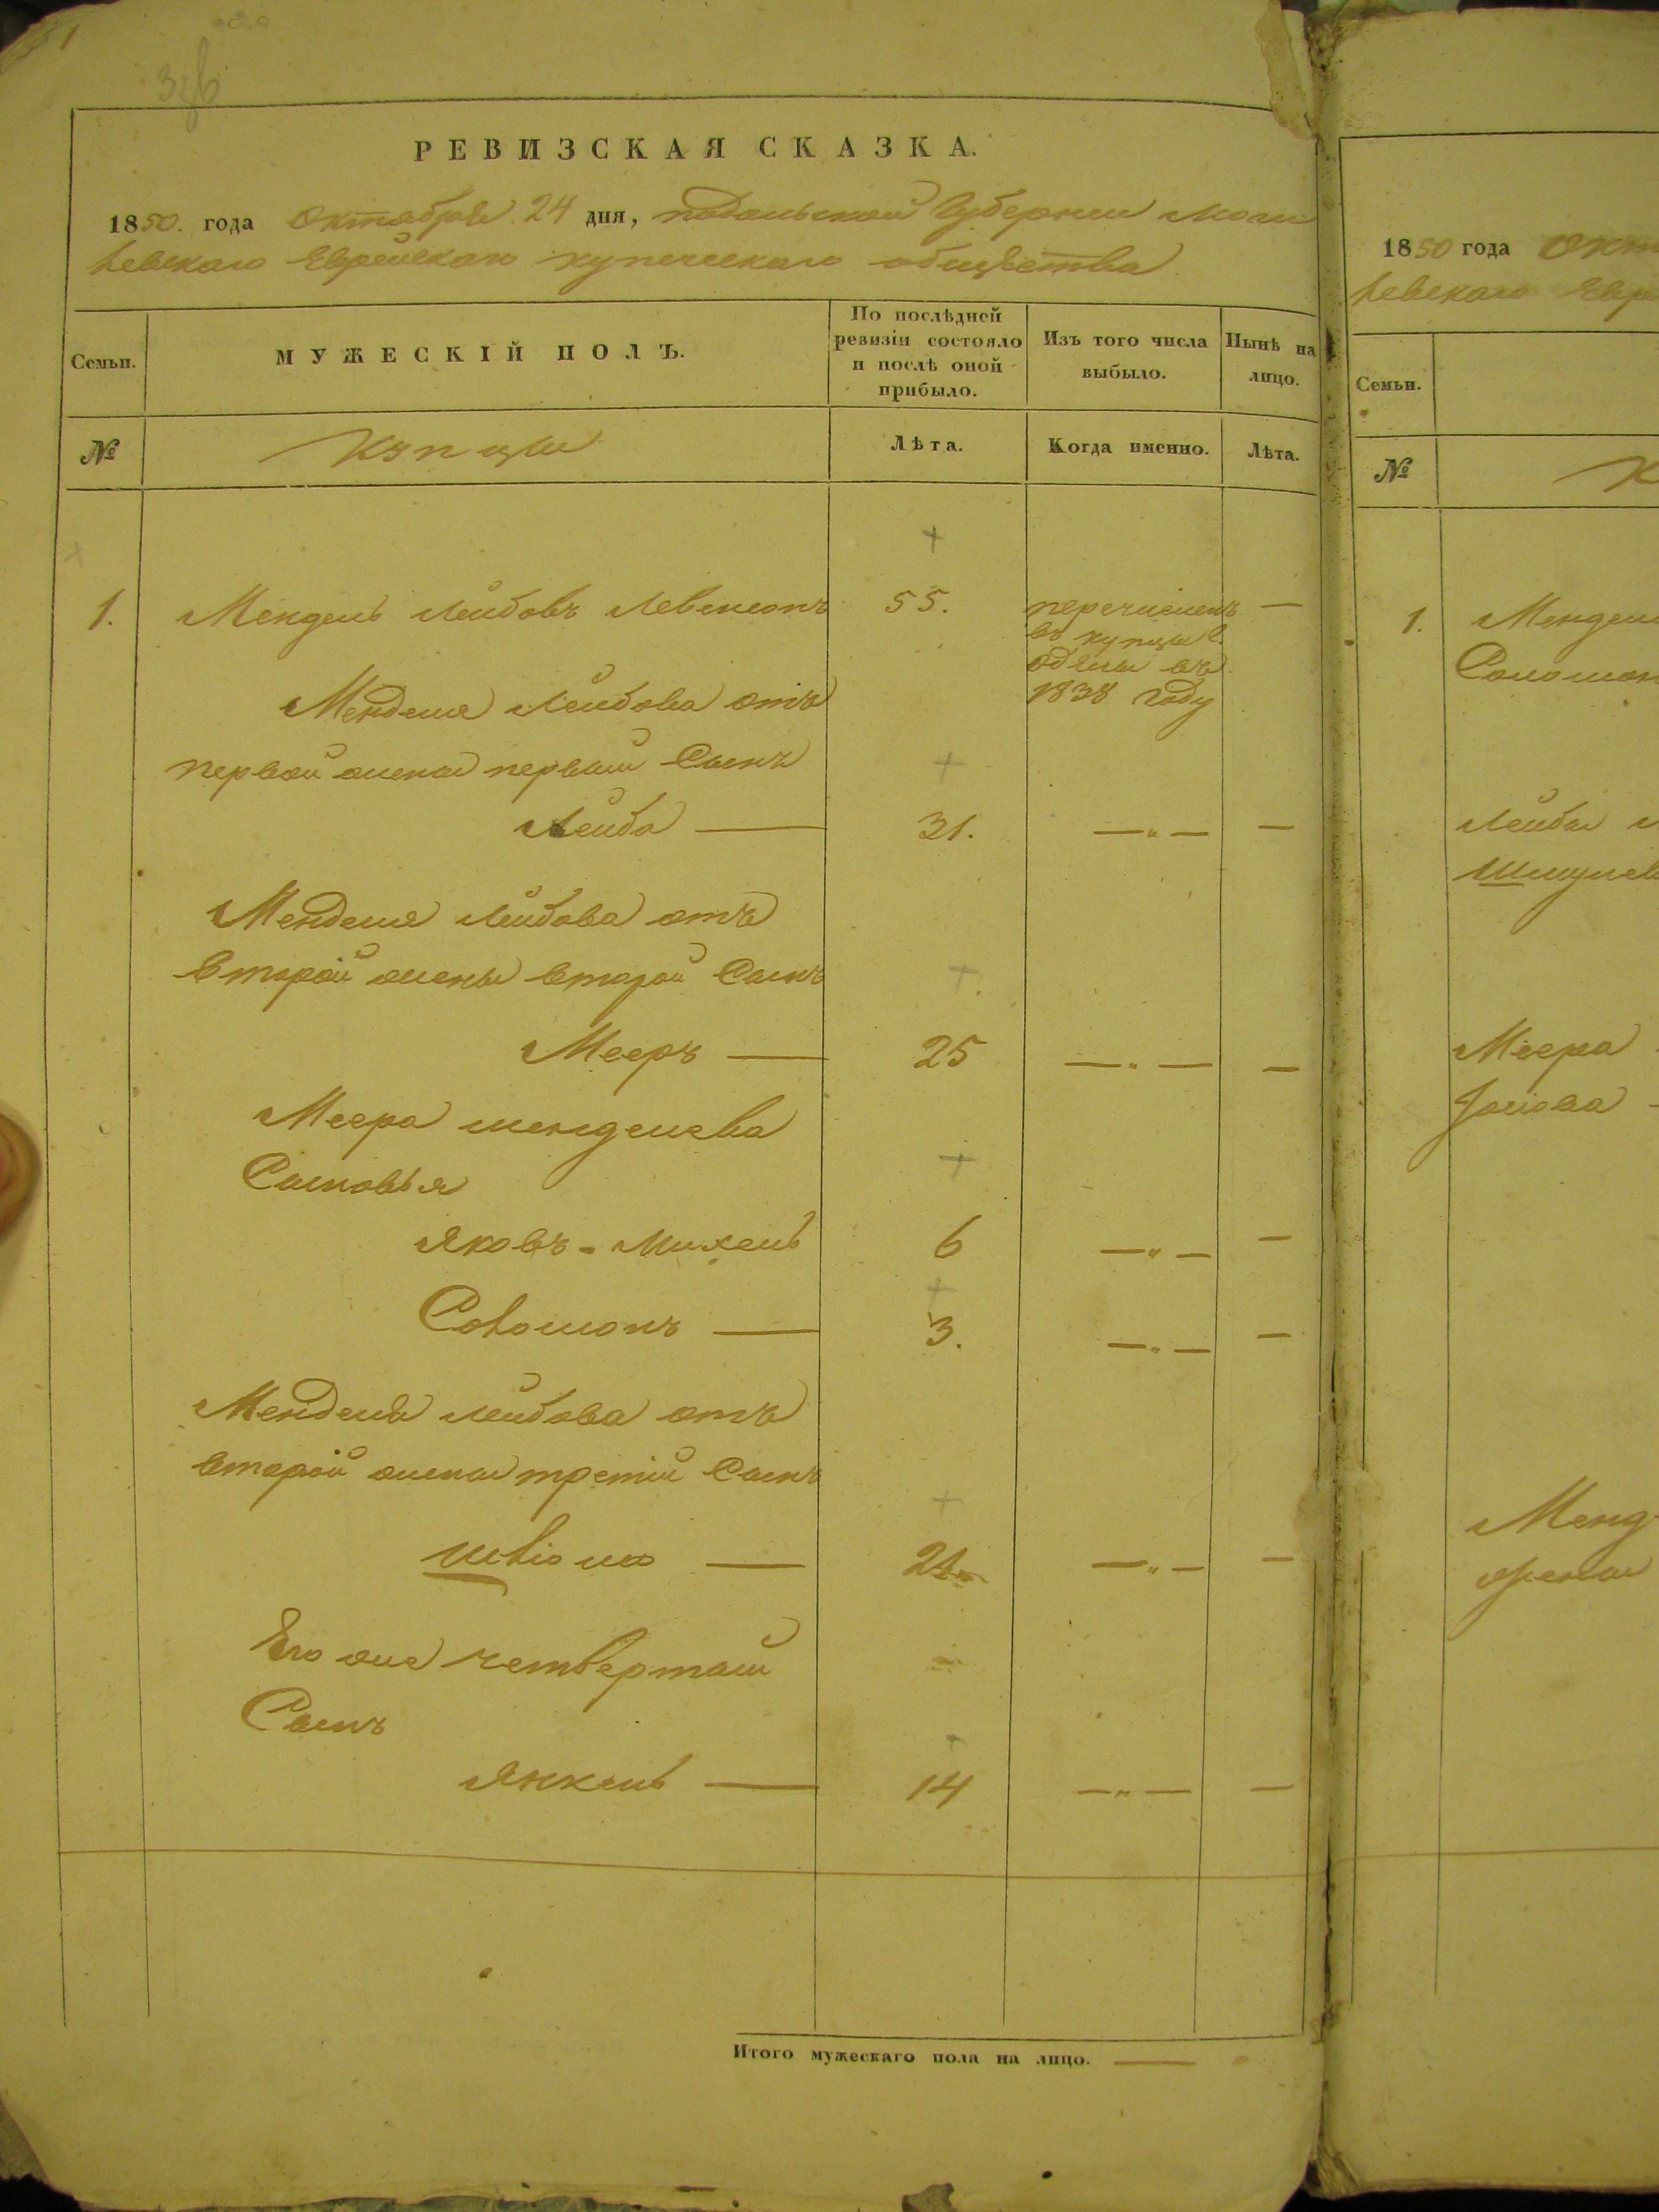 РЕВИЗСКАЯ СКАЗКА.
1850. года Октября 24 дня, подольской Губернии Моги
левскаго Еврейскаго купеческаго общества
Семьи.
МУЖЕСКІЙ ПОЛЪ.
По послѣдней
ревизіи состояло
и послѣ оной
прибыло.
Изъ того числа
выбыло.
Нынѣ на
лицо.
№
Купцы
Лѣта.
Когда именно.
Лѣта.
1. Мендель Лейбовъ Левенсонъ 55. перечисленъ —
въ купцы
въ
1838 году
Менделя Лейбова отъ
первой жены первый Сынъ
Лейба — 31. — „ — —
Менделя Лейбова отъ
второй жены второй Сынъ
Мееръ — 25 — „ — —
Меера менделева
Сыновья
Яковъ - Михель 6 — „ — —
Соломонъ — 3. — „ — —
Менделя Лейбова отъ
второй жены третій Сынъ
Шліома — 21 — „ — —
Его же четвертый
Сынъ
Янкель — 14 — „ — —
Итого мужескаго пола на лицо. —
1850 года Окт
левскаго Евр
Семьи.
№
К
1. Мендел
Соломон
Лейбы
Шмулев
Меера
Менд
жены